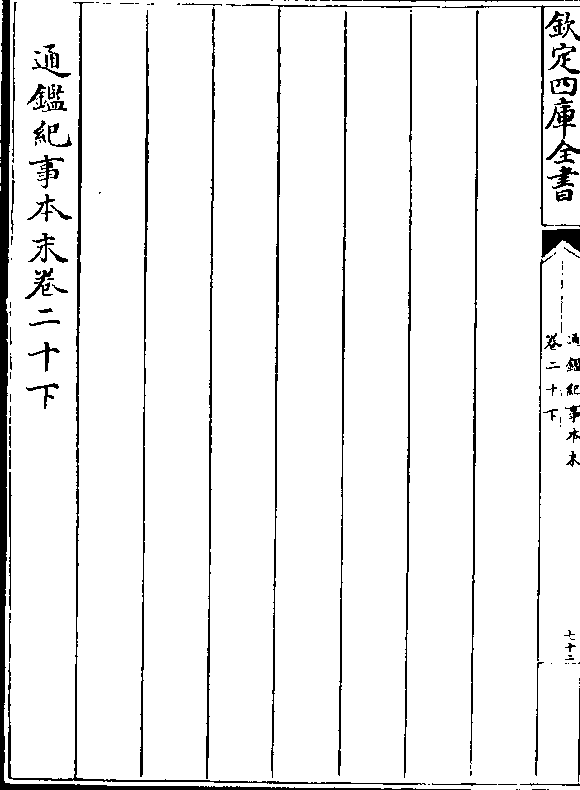 欽定四庫全書
通鑑紀事本末
卷二十下
七十二
通鑑紀事本末卷二十下